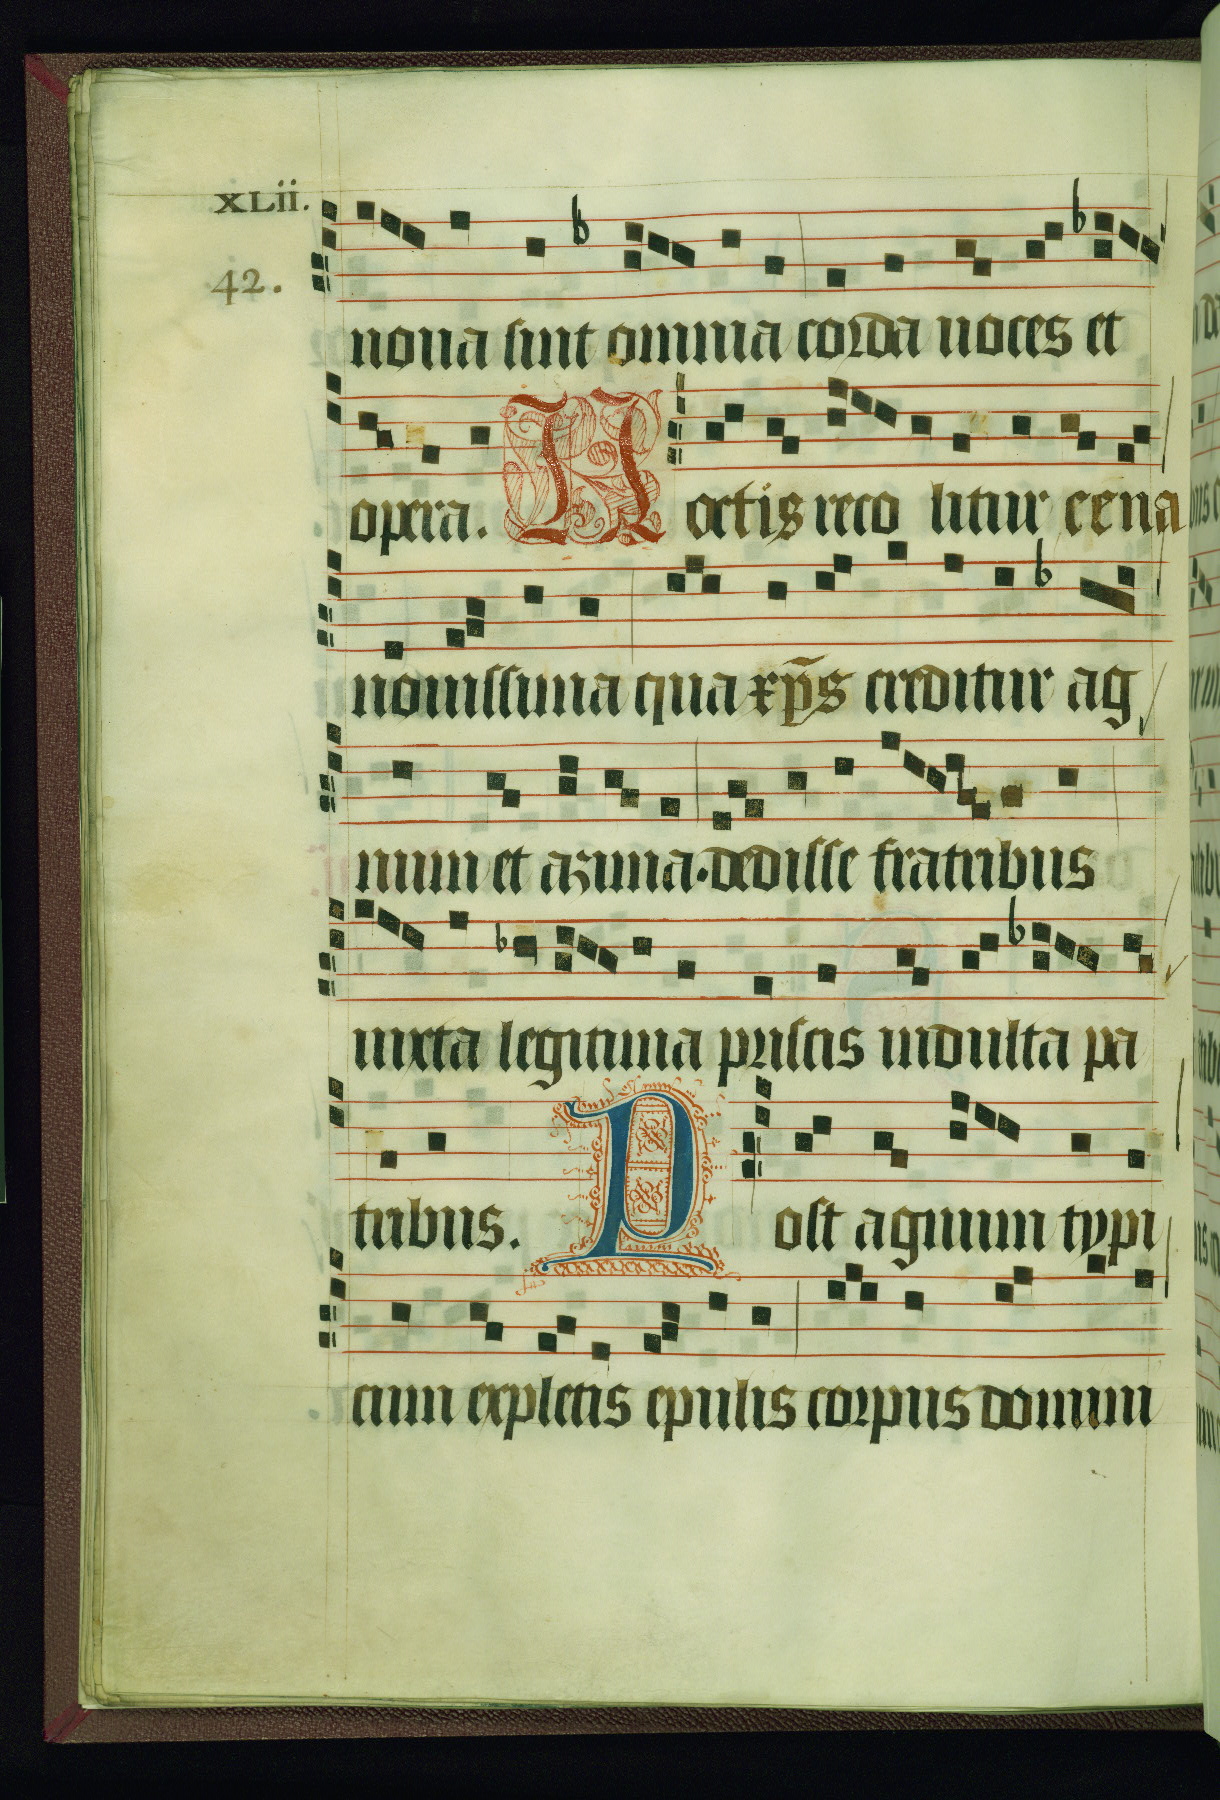 XLii.
42.
noua sint omnia corda uoces et
opera. Noctis reco litur cena
nouissima qua xp̄s creditur ag
num et azima. dedisse fratribus
iuxta legitima priscis indulta pa
tribus. Post agnum typi
cum expletis epulis corpus domini